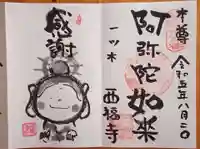 本尊
令和五年八月
阿弥陀如来
一ツ木
西福寺
感謝